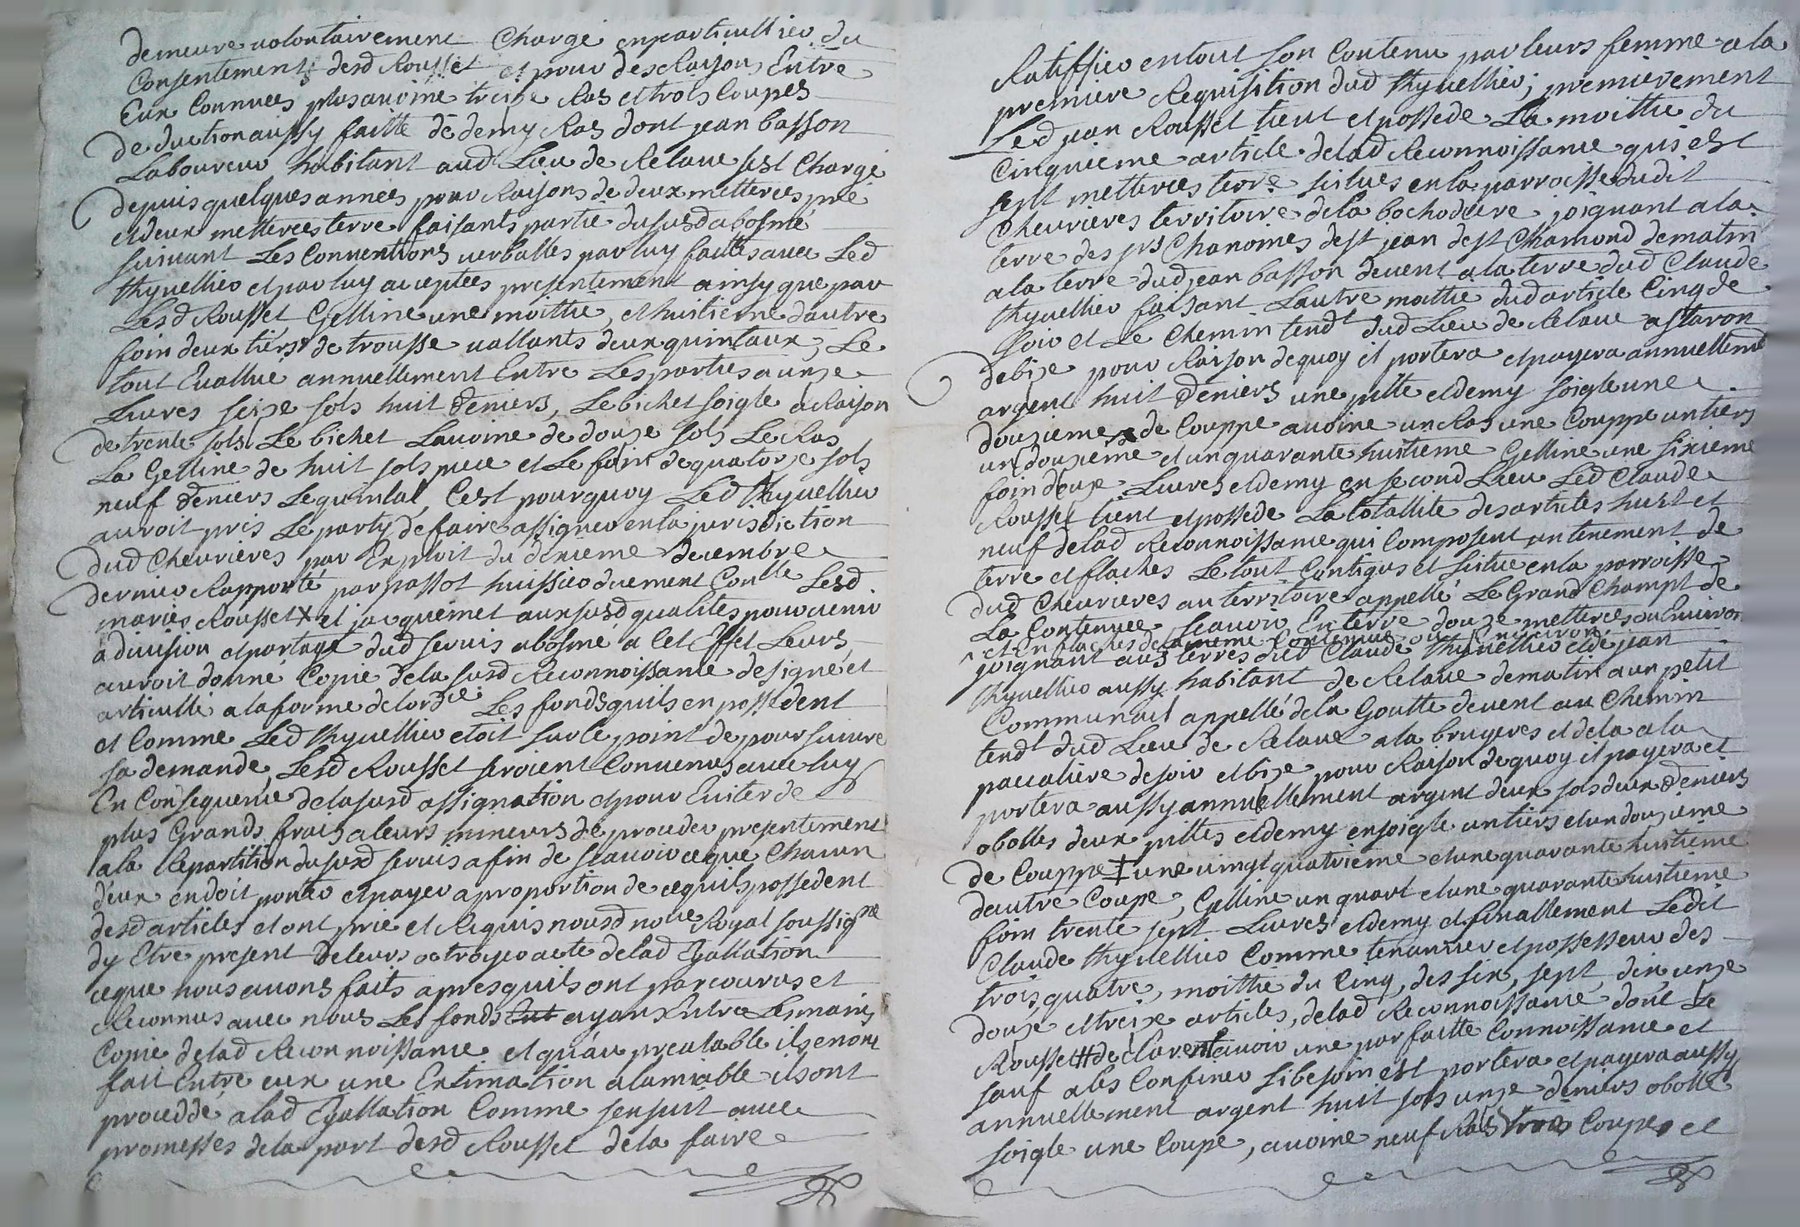 demeure volontairement Chargé enparticullier du
Consentement desd Rousset et pour des Raisons Entre
Eux Connuees plus avoine treize Ras et trois Coupes
deduction aussy faitte de demy Ras dont jean basson
Laboureur habitant aud Lieu de Relave sest Chargé
depuis quelques années pour Raisons de deux metterees pré
et deux metterees terre faisants partie dususd abosmé
suivant Les Conventions verballes par luy faittes avec Led
thyvellier et par luy acceptées presentement ainsy que par
Lesd Rousset, Gelline une moittié, et huitieme dautre
foin deux tiers de trousse vallants deux quintaux, Le
tout Evallué annuellement Entre Les parties a unze
Livres seize sols huit deniers, Le bichet soigle a Raison
de trente sols Le bichet Lavoine de douze sols Le Ras
La Gelline de huit sols piece et Le foin de quatorze sols
neuf deniers Le quintal, Cest pourquoy Led thyvellier
auroit pris Le party de faire assigner en la jurisdiction
dud Chevrieres par Exploit du dixieme decembre
dernier Rapporté par passot huissier duement Conllé Lesd
mariés Rousset X et jacquemet aux susd qualités pour venir
a division et partage dud servis abosmé a Cet Effet Leurs
auroit donné Copie de la susd Reconnoissance designé et
articullé a la forme de lordce Les fonds quils en possedent
et Comme Led thyvellier etoit sur le point de poursuivre
sa demande, Lesd Rousset seroient Convenus avec luy
En Consequence de la susd assignation et pour Eviter de
plus Grands frais a leurs mineurs de proceder presentement
a la Repartition du susd servis afin de scavoir ce que Chacun
deux en doit porter et payer a proportion de ce quils possedent
desd articles et ont prié et Requis nousd nore Royal soussigné
dy Etre present Deleurs octroyer acte delad Egallation
ceque nous avons faits apres quils ont parcourus et
Reconnus avec nous Les fonds ayant Entre Les mains
Copie delad Reconnoissance et quau prealable ils en ont
fait Entre eux une Estimation alamiable ils ont
procedde alad Egallation Comme sensuit avec
promesses de la part desd Rousset de la faire
Ratiffier en tout son Contenu par leurs femme a la
premiere Requisition dud thyvellier; premierement
Led jean Rousset tient et possede La moittié du
Cinquieme article delad Reconnoissance qui est
sept metterees terre situes en la parroisse dudit
Chevrieres territoire de la bochodiere joignant a la
terre des srs Chanoines de st jean de st Chamond de matin
a la terre dud jean basson de vent a la terre dud Claude
thyvellier faisant Lautre moittié dud article Cinq de
soir et Le Chemin tendt dud Lieu de Relave a staron
de bize pour Raison de quoy il portera et payera annuellemt
argent huit deniers une pitte et demy soigle une
douzieme de Couppe avoine un Ras une Couppe un tiers
un douzieme et un quarante huitieme Gelline une sixieme
foin deux Livres et demy en second Lieu Led Claude
Rousset tient et possede La totallité des articles huit et
neuf delad Reconnoissance qui Composent un tenement de
terre et flaches Le tout Contigus et situé en la parroisse
dud Chevrieres au territoire appellé Le Grand Champt de
La Contenue scavoir En terre douze metterees ou Environ
^ et En flaches de la meme Contenue ou Environ
joignant aux terres dud Claude thyvellier et de jean
thyvellier aussy habitant de Relave de matin a un petit
Communail appellé de la Goutte de vent au Chemin
tendt dud Lieu de Relave a la bruyeres et de la a la
paccaliere de soir et bize pour Raison de quoy il payera et
portera aussy annuellement argent deux sols deux deniers
obolles deux pittes et demy en soigle un tiers et un douzieme
de Couppe ‡ une vingt quatrieme et une quarante huitieme
dautre Coupe, Gelline un quart et une quarante huitieme
foin trente sept Livres et demy et finallement Ledit
Claude thyvellier Comme tenancier et possesseur des
trois, quatre, moittié du Cinq, des six, sept, dix, unze
douze et treize articles, delad Reconnoissance dont Le
Rousset # declarent avoir une parfaitte Connoissance et
sauf a les Confiner si besoin est portera et payera aussy
annuellement argent huit sols unze deniers obolle
soigle une Coupe, avoine neuf Ras trois Coupes et